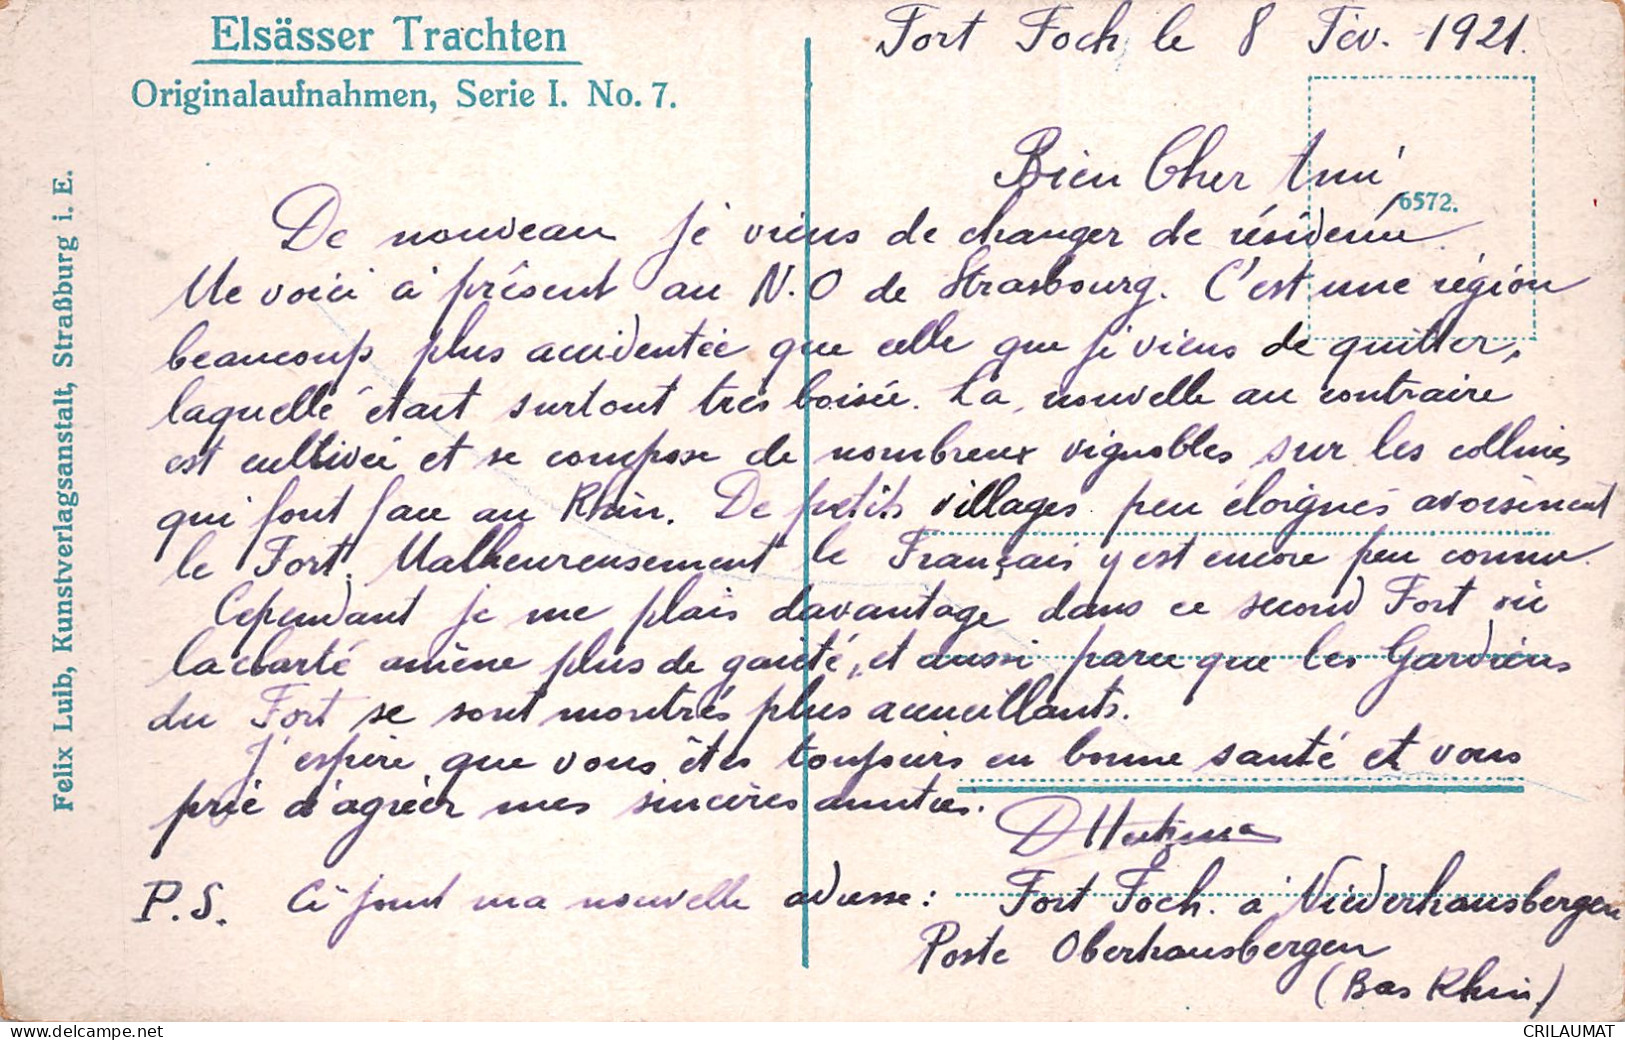 Elsässer Trachten
Originalaufnahmen, Serie I. No. 7.
Felix Luib, Kunstverlagsanstalt, Straßburg i. E.
Fort Foch, le 8 Fév. 1921.
6572.
Bien Cher Ami
De nouveau je viens de changer de résidence.
Me voici à présent au N.O de Strasbourg. C'est une région
beaucoup plus accidentée que celle que je viens de quitter,
laquelle était surtout très boisée. La nouvelle au contraire
est cultivée et se compose de nombreux vignobles sur les collines
qui font face au Rhin. De petits villages peu éloignés avoisinent
le Fort. Malheureusement le Français y est encore peu connu.
Cependant je me plais davantage dans ce second Fort où
la clarté amène plus de gaieté, et aussi parce que les Gardiens
du Fort se sont montrés plus accueillants.
J'espère que vous êtes toujours en bonne santé et vous
prie d'agréer mes sincères amitiés.
P.S. Ci joint ma nouvelle adresse : Fort Foch. à Niederhausbergen
Poste Oberhausbergen
(Bas Rhin)
delcampe.net
CRILAUMAT